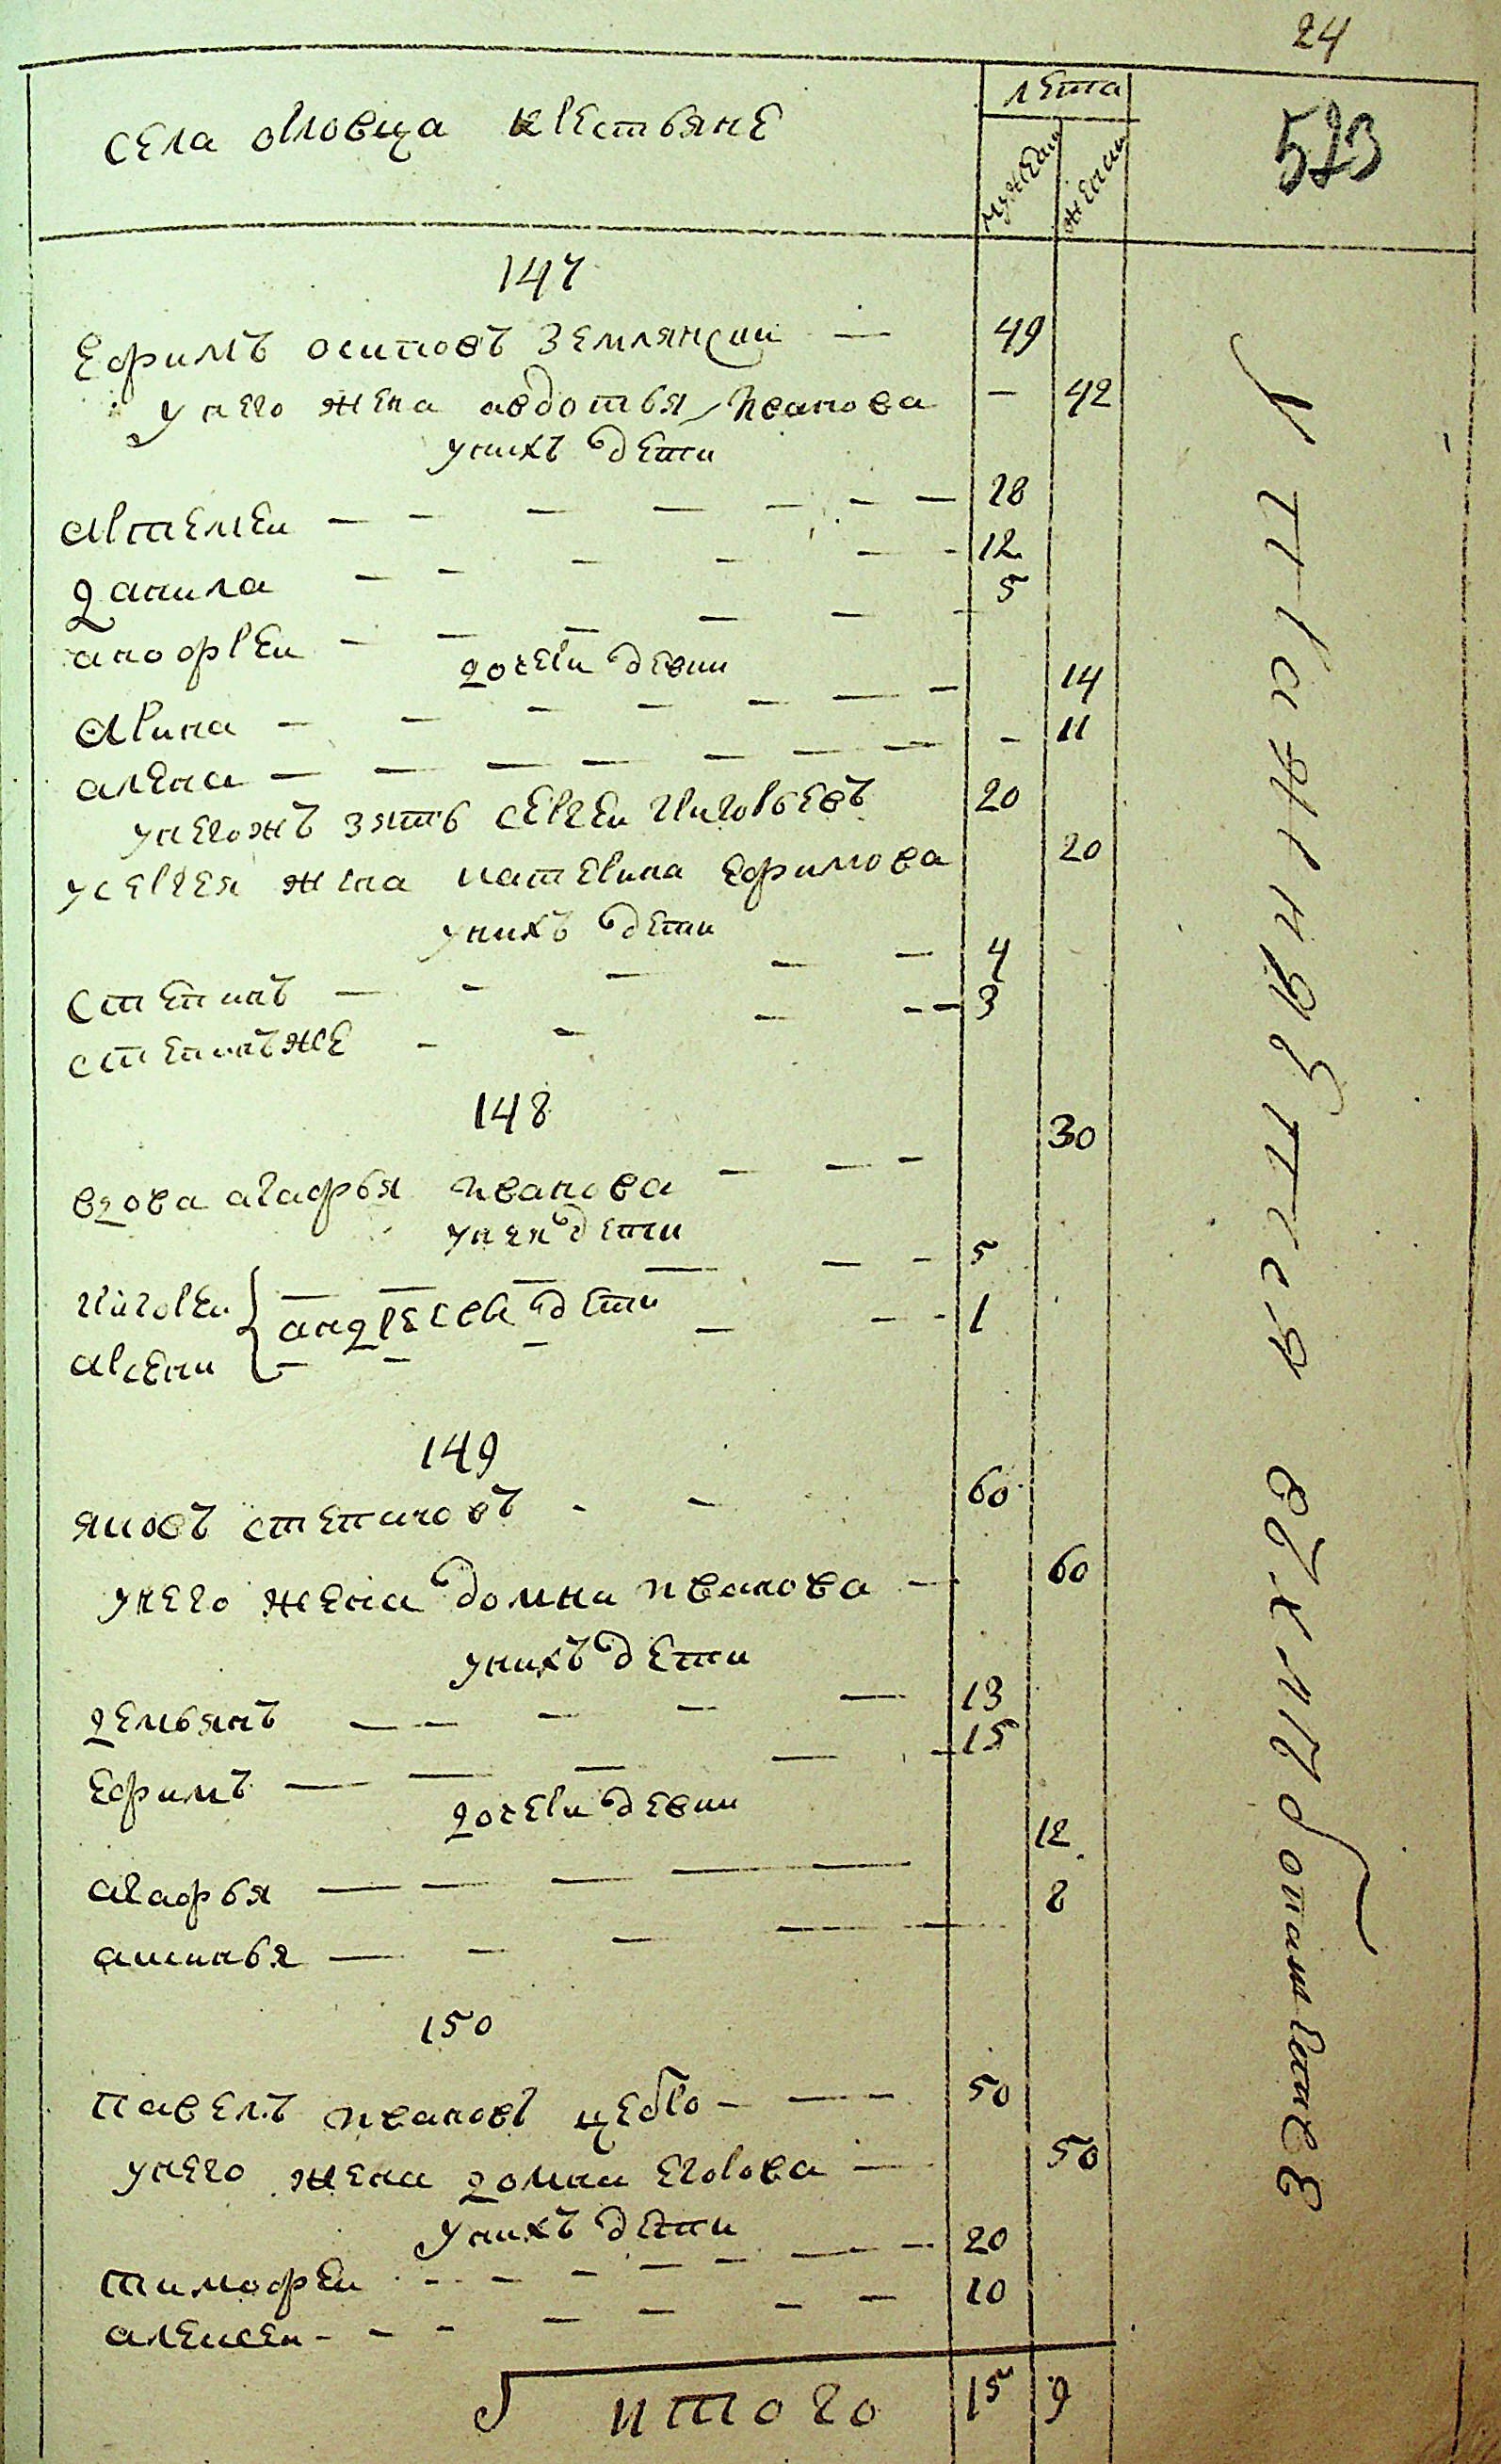 24
523
села Ольовца крестьяне
лета
мужеска
женски
147
Ефимъ осиповъ землянски 49
у него жена авдотья Иванова 42
у нихъ дети
Артемеи 28
Данила 12
аноофреи 5
дочери девки
Арина 14
алена 11
у негожъ зять сергеи григорьевъ 20
у сергея жена катерина ефимова 20
у нихъ дети
степанъ 4
степанъ же 3
148
вдова агафья иванова 30
у нея дети
григореи 5
андреевы дети
арсени 1
149
яковъ степановъ 60
у него жена домна иванова 60
у нихъ дети
демьянъ 13
ефимъ 15
дочери девки
агафья 12
аксинья 8
150
павелъ ивановъ цебро 50
у него жена домна егорова 50
у нихъ дети
тимофеи 20
алексеи 10
итого 15 9